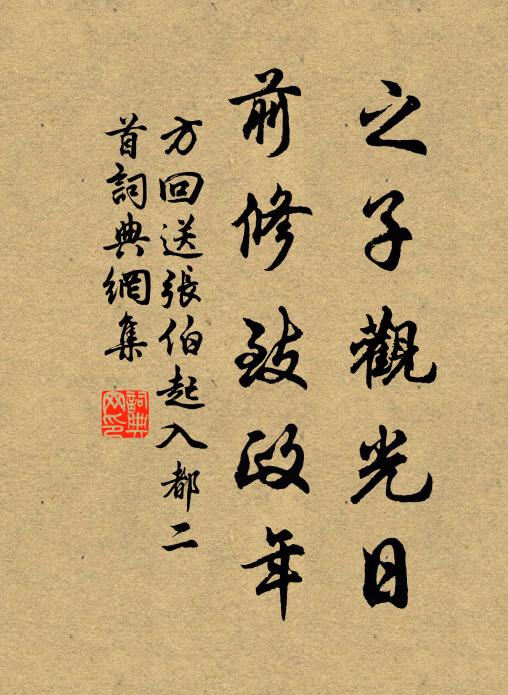 之子觀光日
前修致政年
方回送張伯起入都二
首詞典網集
詞典網印